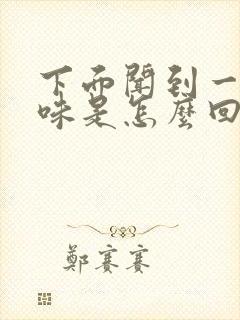 下面聞到一
味是怎麼回
鄭賽賽